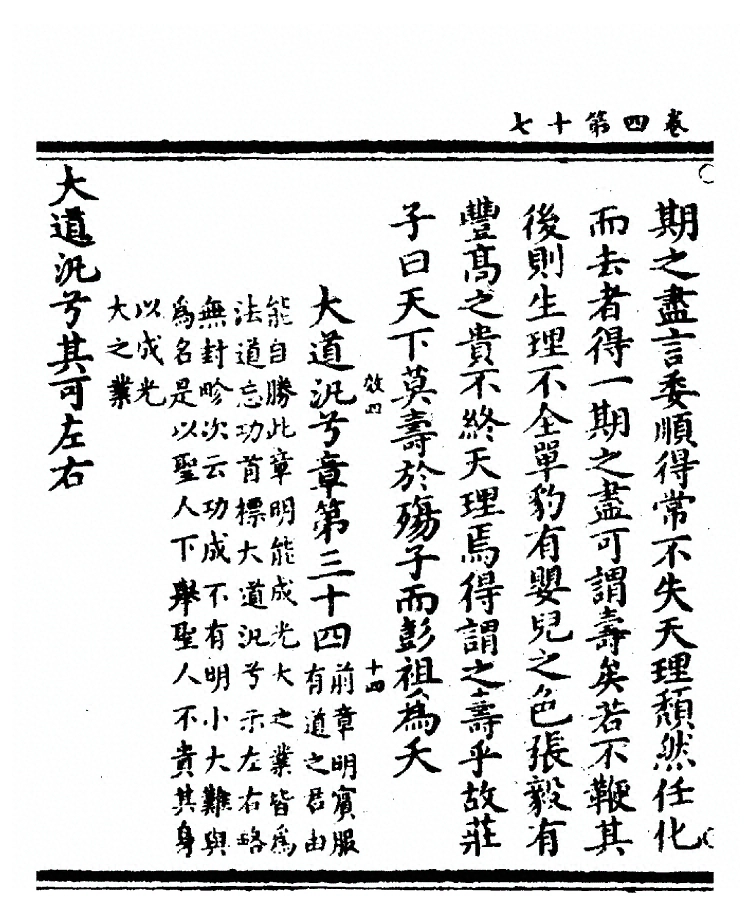 卷四第十七
期之盡言委順得常不失天理頹然任化
而去者得一期之盡可謂壽矣若不鞭其
後則生理不全單豹有嬰兒之色張毅有
豐高之貴不終天理焉得謂之壽乎故莊
子曰天下莫壽於殤子而彭祖為夭
效四
十四
大道汎兮章第三十四
前章明賓服
有道之君由
能自勝此章明能成光大之業皆為
法道忘功首標大道汎兮示左右略
無封畛次云功成不有明小大難與
為名是以聖人下舉聖人不貴其身
以成光
大之業
大道汎兮其可左右